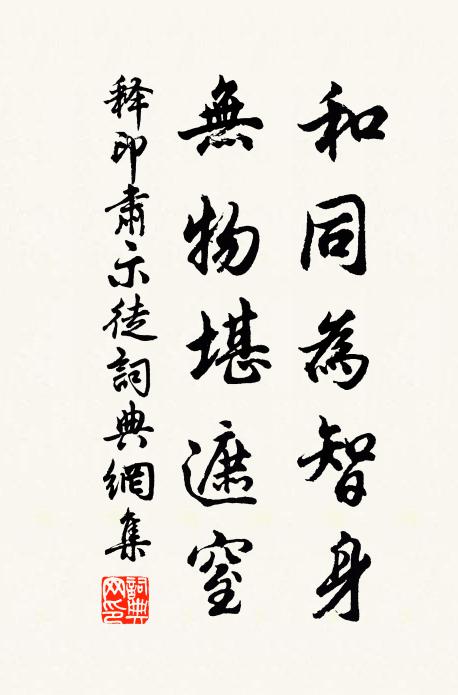 和同為智身
無物堪遮窒
释印肅示徒詞典網集
詞典网印